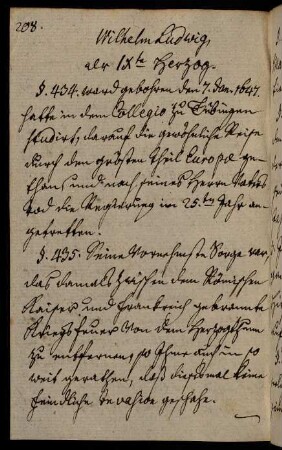 208.
Wilhelm Ludwig,
als IXte Herzog.
§. 434. ward gebohren den 7. Jan. 1647.
hatte in dem Collegio zu Tübingen
studirt, darauf die gewöhnliche Reise
durch den grösten Theil Europæ ge-
than, und nach seines Herrn Vatters
Tod die Regierung im 25.ten Jahr an-
getretten.
§. 435. Seine Vornehmste Sorge war,
das damals zwischen dem Römischen
Kaiser und Frankreich gebrannte
Kriegs Feuer von dem Herzogthum
zu entfernen, so Ihme auch in so
weit gerathen, daß diesesmal keine
feindliche Invasion geschahe.